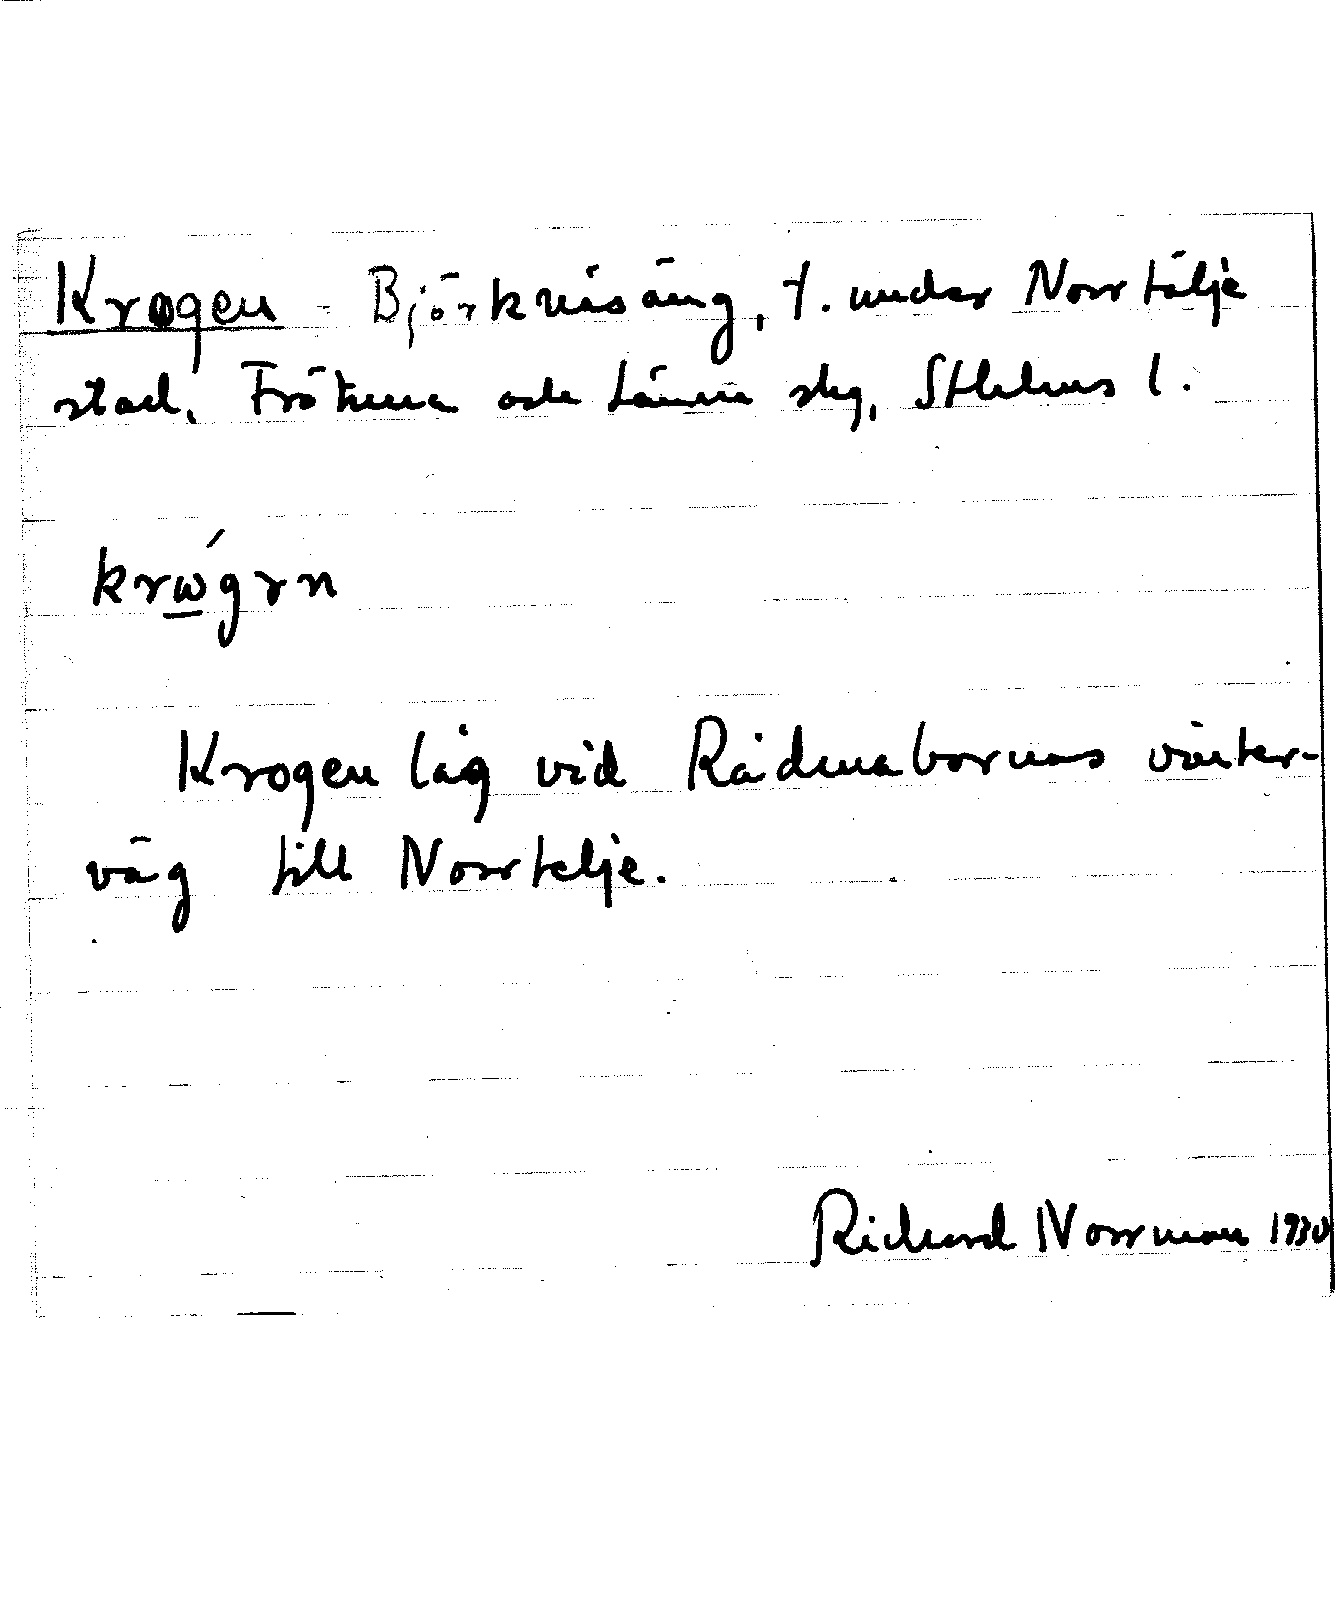 Krogen - Björknäsäng, t. under Norrtälje
stad, Frötuna och Länna skg, Sthlms l.
krώgɤn
Krogen låg vid Rådmabornas vinter-
väg till Norrtelje.
Richard Norrman 1930